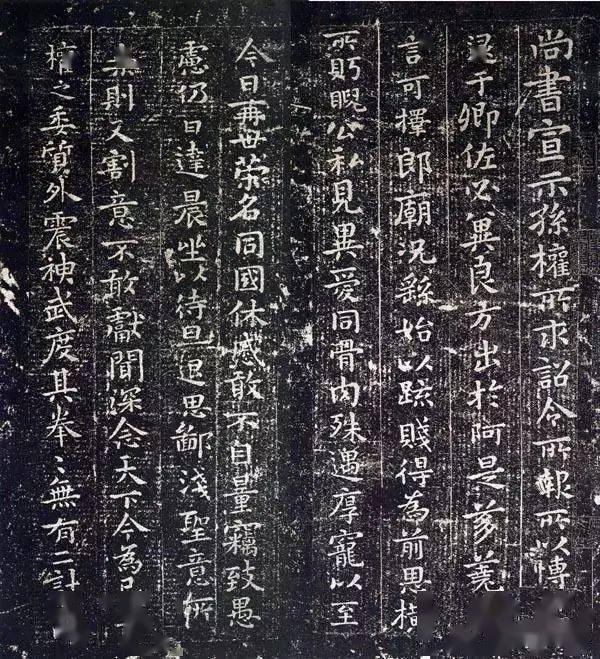 尚書宣示孫權所求詔令所報所以博
逮于卿佐必冀良方出於阿是芻蕘
言可擇郎廟況繇始以疏賤得為前恩橫
所盱睨公私見異愛同骨肉殊遇厚寵以至
今日再世榮名同國休慼敢不自量竊致愚
慮仍日達晨坐以待旦退思鄙淺聖意所
棄則又割意不敢獻聞深念天下今為已
權之委質外震神武度其拳〻無有二計